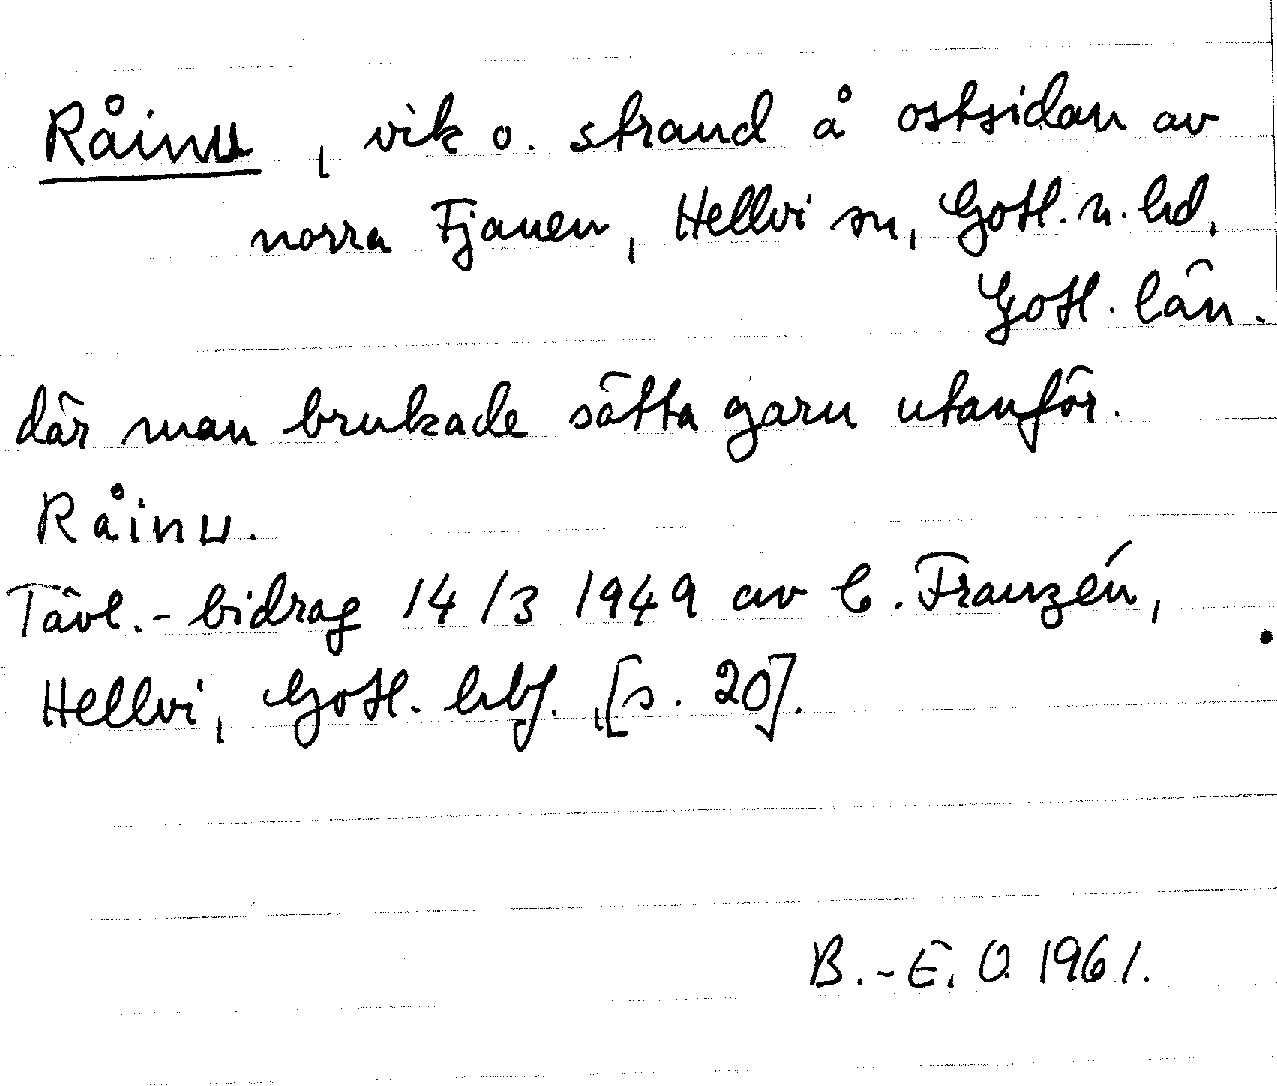 Råinu, vik o. strand å ostsidan av
norra Fjauen, Hellvi sn, Gotl. n. hd,
Gotl. län.
där man brukade sätta garn utanför.
Råinu.
Tävl.-bidrag 14/3 1949 av C. Franzén,
Hellvi, Gotl. hbf. [s. 20].
B.-E. O 1961.